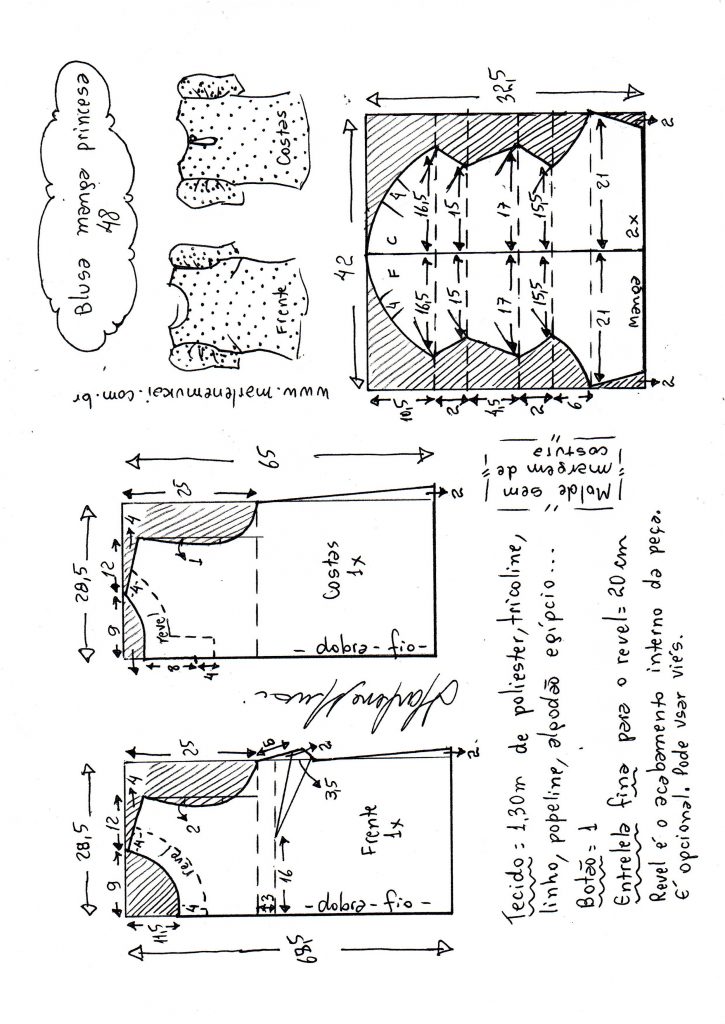 Blusa manga princesa
48
Frente
Costas
www.marlenemukai.com.br
28,5
9
12
4
4
11,5
4
25
2
revel
6
2
3,5
3
16
Frente
1x
- dobra - fio -
68,5
2
28,5
9
12
4
4
25
1
revel
8
4
Costas
1x
- dobra - fio -
65
2
42
32,5
4
F
C
4
16,5
16,5
15
15
17
17
15,5
15,5
21
21
10,5
2
4,5
2
6
Manga
2x
2
2
Molde sem
margem de
costura
Tecido = 1,30m de poliester, tricoline,
linho, popeline, algodão egípcio...
Botão = 1
Entretela fina para o revel = 20 cm
Revel é o acabamento interno da peça.
É opcional. Pode usar viés.